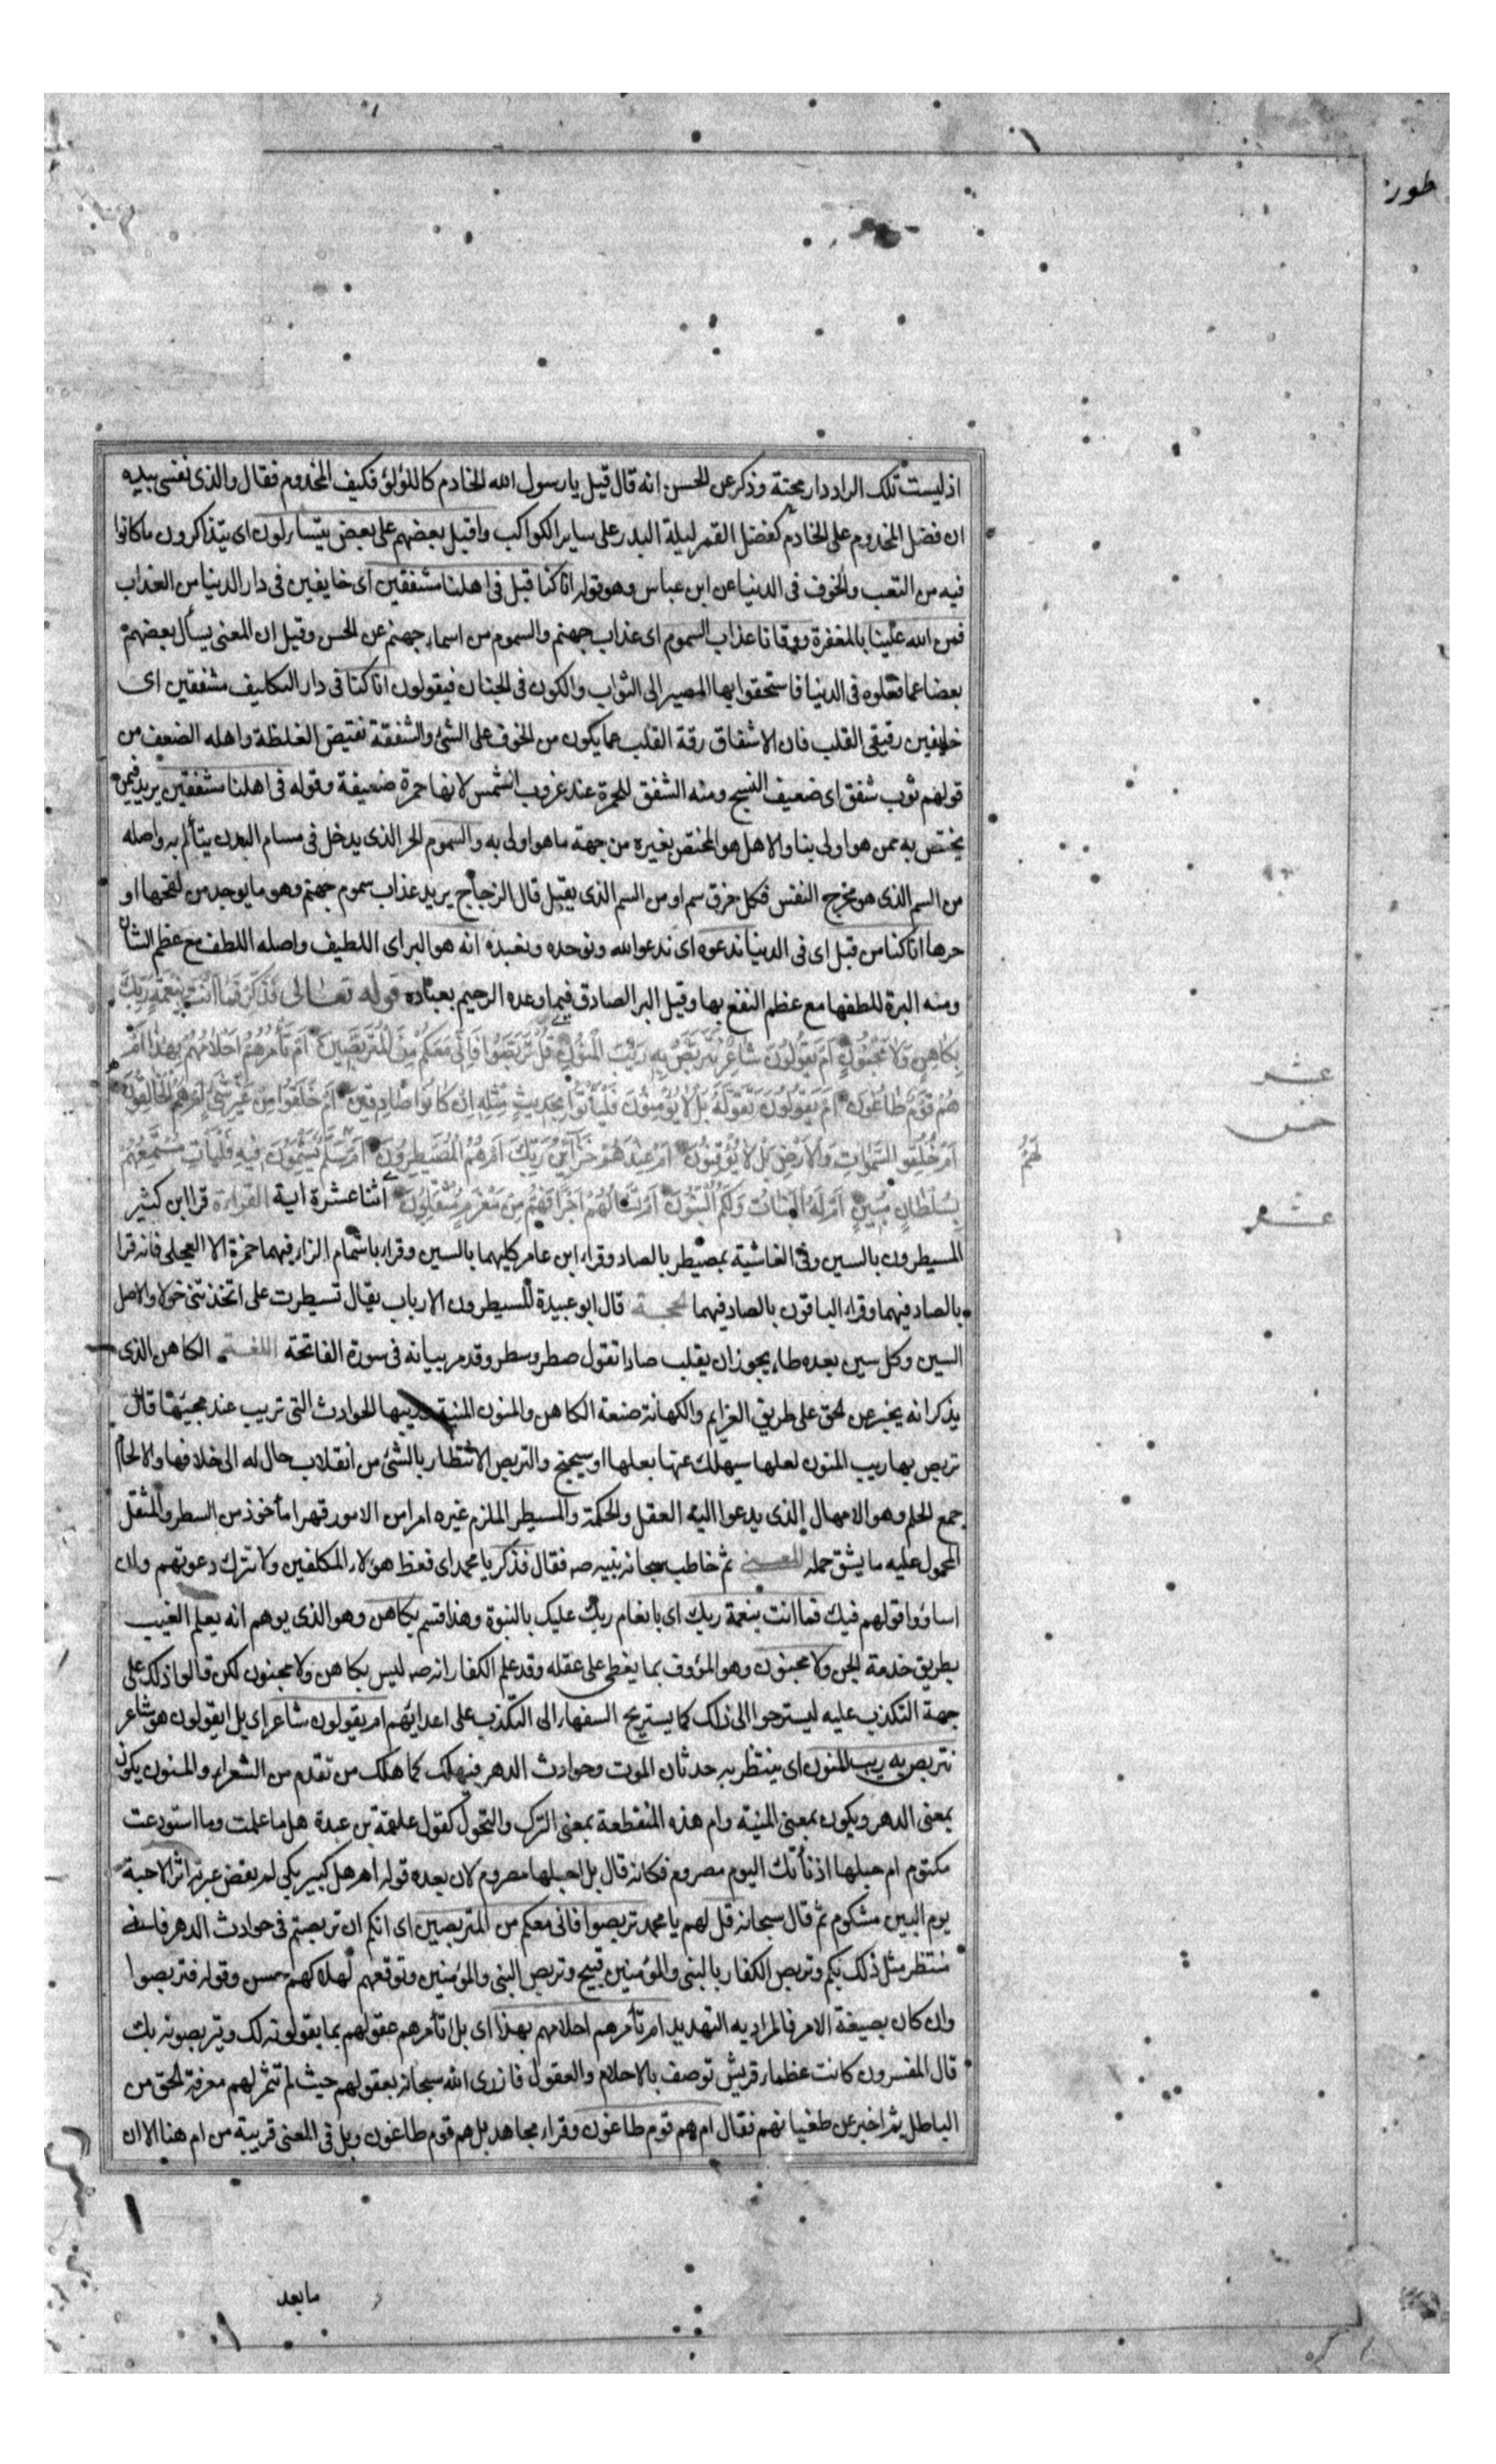 طور
اذ ليست تلك الدار دار محنة وذكر عن الحسن انه قال قيل يا رسول الله الخادم كاللؤلؤ فكيف المخدوم فقال والذى نفسى بيده
ان فضل المخدوم على الخادم كفضل القمر ليلة البدر على ساير الكواكب واقبل بعضهم على بعض يتساءلون اى يتذاكرون ما كانوا
فيه من التعب والخوف فى الدنيا عن ابن عباس وهو قوله انا كنا قبل فى اهلنا مشفقين اى خايفين فى دار الدنيا من العذاب
فمن الله علينا بالمغفرة ووقانا عذاب السموم اى عذاب جهنم والسموم من اسماء جهنم عن الحسن وقيل ان المعنى يسأل بعضهم
بعضا عما فعلوه فى الدنيا فاستحقوا بها المصير الى الثواب والكون فى الجنان فيقولون انا كنا فى دار التكليف مشفقين اى
خايفين رقيقى القلب فان الاشفاق رقة القلب عما يكون من الخوف على الشئ والشفقة نقيض الغلظة واصله الضعف من
قولهم ثوب شفق اى ضعيف النسج ومنه الشفق للحمرة عند غروب الشمس لانها حمرة ضعيفة وقوله فى اهلنا مشفقين يريد فيمن
يختص به ممن هو اولى بنا والاهل هو المختص بغيره من جهة ما هو اولى به والسموم الحر الذى يدخل فى مسام البدن يتألم به واصله
من السم الذى هو مخرج النفس فكل خرق سم او من السم الذى يقتل قال الزجاج يريد عذاب سموم جهنم وهو ما يوجد من لفحها او
حرها انا كنا من قبل اى فى الدنيا ندعوه اى ندعو الله ونوحده ونعبده انه هو البر اى اللطيف واصله اللطف مع عظم الشان
ومنه البرة للطفها مع عظم النفع بها وقيل البر الصادق فيما وعده الرحيم بعباده قوله تعالى فَذَكِّرْ فَمَا اَنْتَ بِنِعْمَةِ رَبِّكَ
بِكَاهِنٍ وَلَا مَجْنُونٍ اَمْ يَقُولُونَ شَاعِرٌ نَتَرَبَّصُ بِهِ رَيْبَ الْمَنُونِ قُلْ تَرَبَّصُوا فَاِنِّى مَعَكُمْ مِنَ الْمُتَرَبِّصِينَ اَمْ تَأْمُرُهُمْ اَحْلَامُهُمْ بِهٰذَا اَمْ
هُمْ قَوْمٌ طَاغُونَ اَمْ يَقُولُونَ تَقَوَّلَهُ بَلْ لَا يُؤْمِنُونَ فَلْيَأْتُوا بِحَدِيثٍ مِثْلِهِ اِنْ كَانُوا صَادِقِينَ اَمْ خُلِقُوا مِنْ غَيْرِ شَىْءٍ اَمْ هُمُ الْخَالِقُونَ
عشر
خمس
اَمْ خَلَقُوا السَّمٰوَاتِ وَالْاَرْضَ بَلْ لَا يُوقِنُونَ اَمْ عِنْدَهُمْ خَزَائِنُ رَبِّكَ اَمْ هُمُ الْمُصَيْطِرُونَ اَمْ سُلَّمٌ يَسْتَمِعُونَ فِيهِ فَلْيَأْتِ مُسْتَمِعُهُمْ
لَهُمْ
بِسُلْطَانٍ مُبِينٍ اَمْ لَهُ الْبَنَاتُ وَلَكُمُ الْبَنُونَ اَمْ تَسْأَلُهُمْ اَجْرًا فَهُمْ مِنْ مَغْرَمٍ مُثْقَلُونَ اثنا عشرة اية القراءة قرا ابن كثير
عشر
المسيطرون بالسين وفى الغاشية بمصيطر بالصاد وقراء ابن عامر كليهما بالسين وقراء باشمام الزاء فيهما حمزة الا العجلى فانه قرا
بالصاد فيهما وقراء الباقون بالصاد فيهما الحجة قال ابو عبيدة المسيطرون الارباب يقال تسيطرت على اتخذتنى خولا والاصل
السين وكل سين بعده طاء يجوز ان يقلب صادا تقول صطر وسطر وقد مر بيانه فى سورة الفاتحة اللغة الكاهن الذى
يذكر انه يخبر عن الحق على طريق العزايم والكهانة صنعة الكاهن والمنون المنية وريبها الحوادث التى تريب عند مجيئها قال
تربص بها ريب المنون لعلها سيهلك عنها بعلها او سيجنح والتربص الانتظار بالشئ من انقلاب حال له الى خلافها والاحلام
جمع الحلم وهو الامهال الذى يدعوا اليه العقل والحكمة والمسيطر الملزم غيره امرا من الامور قهرا مأخوذ من السطر والمثقل
المحمول عليه ما يشق حمله المعنى ثم خاطب سبحانه نبيه صه فقال فذكر يا محمد اى فعظ هؤلاء المكلفين ولا تترك دعوتهم وان
اساؤوا قولهم فيك فما انت بنعمة ربك اى بانعام ربك عليك بالنبوة وهذا قسم بكاهن وهو الذى يوهم انه يعلم الغيب
بطريق خدمة الجن ولا مجنون وهو المؤوف بما يغطى على عقله وقد علم الكفار انه صه ليس بكاهن ولا مجنون لكن قالوا ذلك على
جهة التكذب عليه ليستريحوا الى ذلك كما يستريح السفهاء الى التكذب على اعدائهم ام يقولون شاعر اى بل ايقولون هو شاعر
نتربص به ريب المنون اى ينتظر به حدثان الموت وحوادث الدهر فيهلك كما هلك من تقدم من الشعراء والمنون يكون
بمعنى الدهر ويكون بمعنى المنية وام هذه المنقطعة بمعنى الترك والتحول كقول علقمة بن عبدة هل ما علمت وما استودعت
مكتوم ام حبلها اذ نأتك اليوم مصروم فكانه قال بل احبلها مصروم لان بعده قوله ام هل كبير بكى لم يقض عبرته اثر الاحبة
يوم البين مشكوم ثم قال سبحانه قل لهم يا محمد تربصوا فانى معكم من المتربصين اى انكم ان تربصتم فى حوادث الدهر فاننى
منتظر مثل ذلك بكم وتربص الكفار بالنبى والمؤمنين قبيح وتربص النبى والمؤمنين وتوقعهم لهلاكهم حسن وقوله فتربصوا
وان كان بصيغة الامر فالمراد به التهديد ام تأمرهم احلامهم بهذا اى بل اتأمرهم عقولهم بما يقولونه لك ويتربصونه بك
قال المفسرون كانت عظماء قريش توصف بالاحلام والعقول فازرى الله سبحانه بعقولهم حيث لم تثمر لهم معرفة الحق من
الباطل ثم اخبر عن طغيانهم فقال ام هم قوم طاغون وقراء مجاهد بل هم قوم طاغون وبل فى المعنى قريبة من ام هنا الا ان
ما بعد